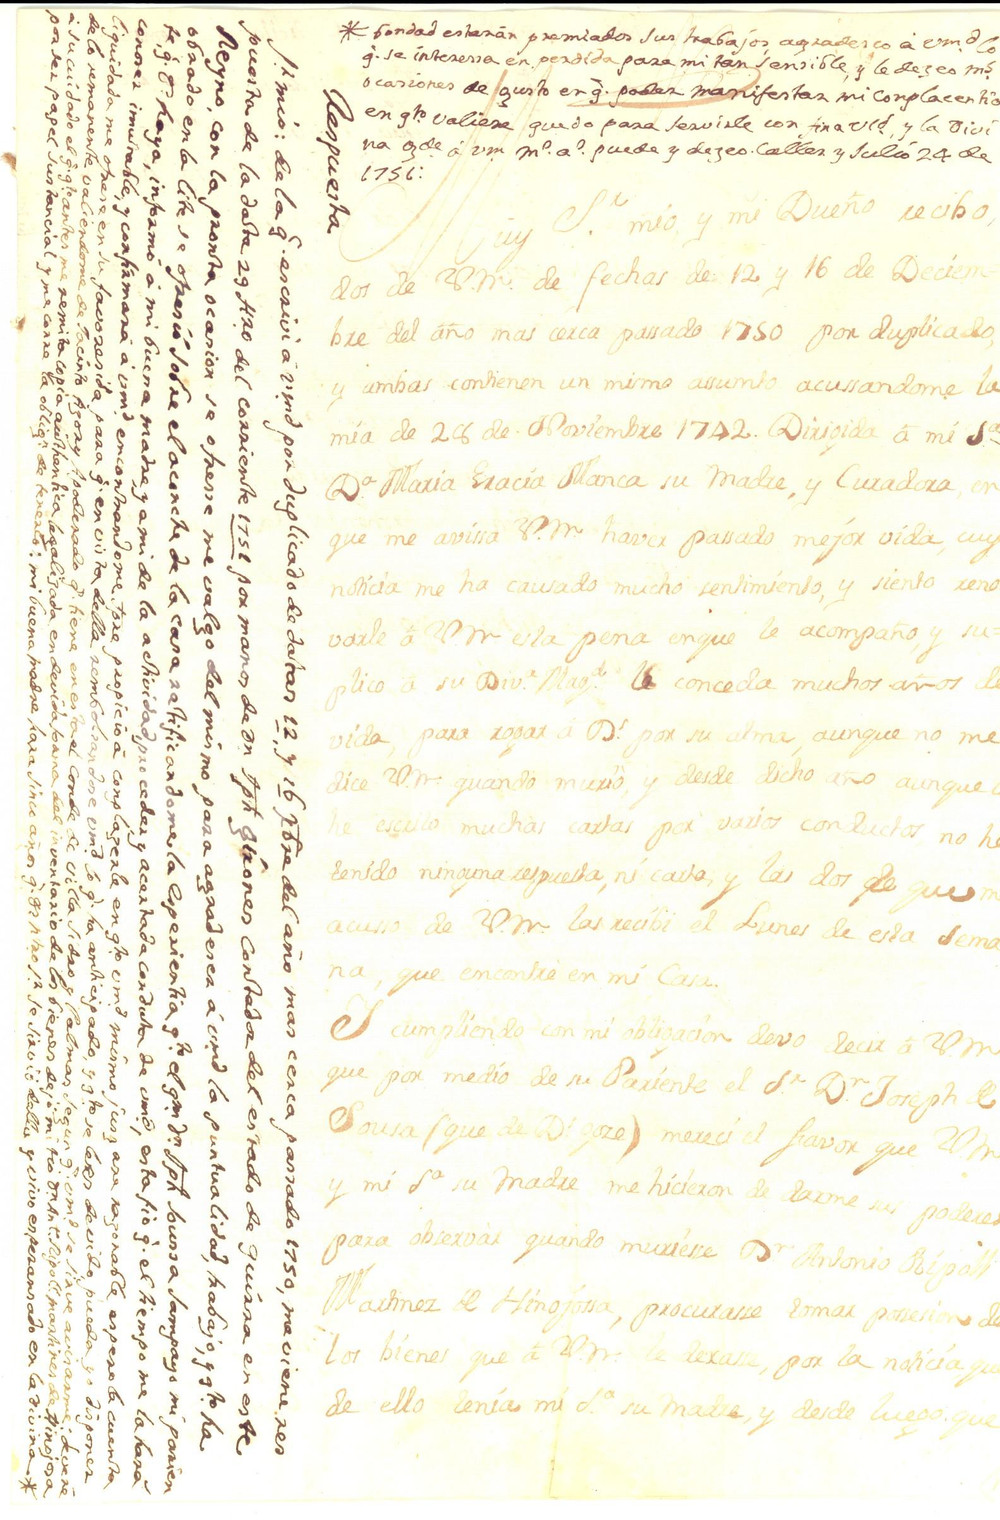 * bondad estarán premiados sus trabajos agradesco á vmd lo
q. se interessa en perdida para mi tan sensible, y le dezeo ms.
ocasiones de gusto en q. poder manifestar mi complacentia
en qto valiere quedo para servirle con fina vtd, y la Divi
na gde á vm ms. as. puede y dezeo. Caller y Julio 24 de
1751:
Muy Sr. mio, y mi Dueño recibo,
dos de V.M. de fechas de 12 y 16 de Deciem-
bre del año mas cerca passado 1750 por duplicado,
y ambas contienen un mismo assumto acussandome la
mia de 28 de Noviembre 1742. Dirigida á mi Sa
Da. Maria Gracia Manca su Madre, y Curadora, en
que me avissa V.M. haver passado mejor vida, cuy
noticia me ha causado mucho sentimiento, y siento reno
varle á V.M. esta pena enque le acompaño, y su-
plico á su Diva. Magd. le conceda muchos años de
vida, para rogar á Ds. por su alma, aunque no me
dice V.M. quando murió, y desde dicho año aunque
he escrito muchas cartas por varios conductos no he
tenido ninguna respuesta, ni carta, y las dos de que m
acusso de V.M. las recibi el Lunes de esta sema
na, que encontre en mi Casa.
I cumpliendo con mi obligacion devo decir á V.M.
que por medio de su Pariente el Sr. Dn. Joseph de
Sousa (que de Ds. goze) mereci el favor que V.M.
y mi Sa. su Madre me hicieron de darme sus poderes
para observar quando muriesse Dn. Antonio Ripoll
Martinez de Hinojossa, procurasse tomar possesion de
los bienes que á V.M. le dexasse, por la noticia que
de ello tenia mi Sa. su Madre, y desde luego que
Respuesta
Sr. mio: de la q. escrivi á vmd por duplicado de datas 12, y 16 Xbre del año mas cerca passado 1750, me viene res
puesta de la data 29 del corriente 1751 por manos de Dn. Jph Girones contador del estado de Quirra en este
Reyno, con la pronta ocasion se ofresse me valgo del mismo para agradeser á vmd la puntualidad, trabajo, y qto ha
obrado en la lite se ofresió sobre el aconche de la casa ratificandome la esperientia qto el qm. Dn. Jph Soussa Sampayo mi parien
te, q. D. haya, informó á mi buena madre, y a mi de la actividad, proceder, y acertada conducta de vmd, esta fió q. el tiempo me la hará
conoser imutable, y confirmará á vmd encontrandome propicio á complaserle en qto vmd mismo jusgare rasonable, espero la cuenta
liquidada me ofrese en su favoresida, para q. en vista della rembolsandose vmd lo q. ha anticipado, y qto se le es devido, pueda yo disponer
de lo remanente valiendome de Jacinto Agory Apoderado q. tiene en esta el conde de Villa Sidro y Palmas segun q. vmd se sirve avisarme, deveré
á su cuidado el q. qto antes me remita copia authentica legalizada en devida forma del inventario de los bienes dejó mi tio Dn. Ant. Ripoll martines de Hinojosa
por ser papel sustancial y me corre la obligon. de tenerlo: mi buena madre hara sinco años q. Dios ntro Sr. se sirvió della y vivo esperansado en la divina *